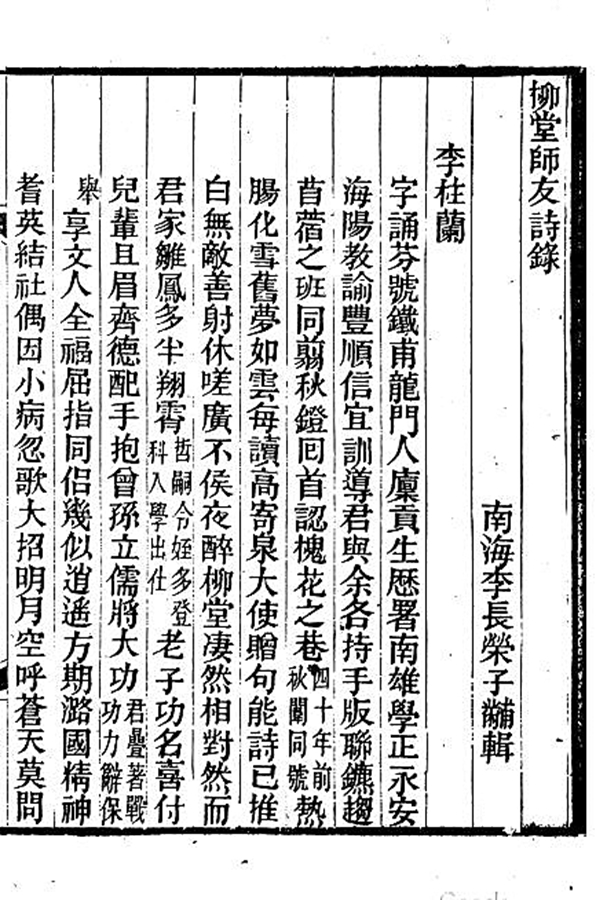 柳堂師友詩錄
南海李長榮子黼輯
李杜蘭
字誦芬號鐵甫龍門人廩貢生歷署南雄學正永安
海陽教諭豐順信宜訓導君與余各持手版聯鑣趨
苜蓿之班同翦秋鐙囘首認槐花之巷四十年前秋闈同號熱
腸化雪舊夢如雲每讀高寄泉大使贈句能詩已推
白無敵善射休嗟廣不侯夜醉柳堂淒然相對然而
君家雛鳳多半翔霄哲嗣令姪多登科入學出仕老子功名喜付
兒輩且眉齊德配手抱曾孫立儒將大功君疊著戰功力辭保
舉享文人全福屈指同侶幾似逍遙方期潞國精神
耆英結社偶因小病忽歌大招明月空呼蒼天莫問